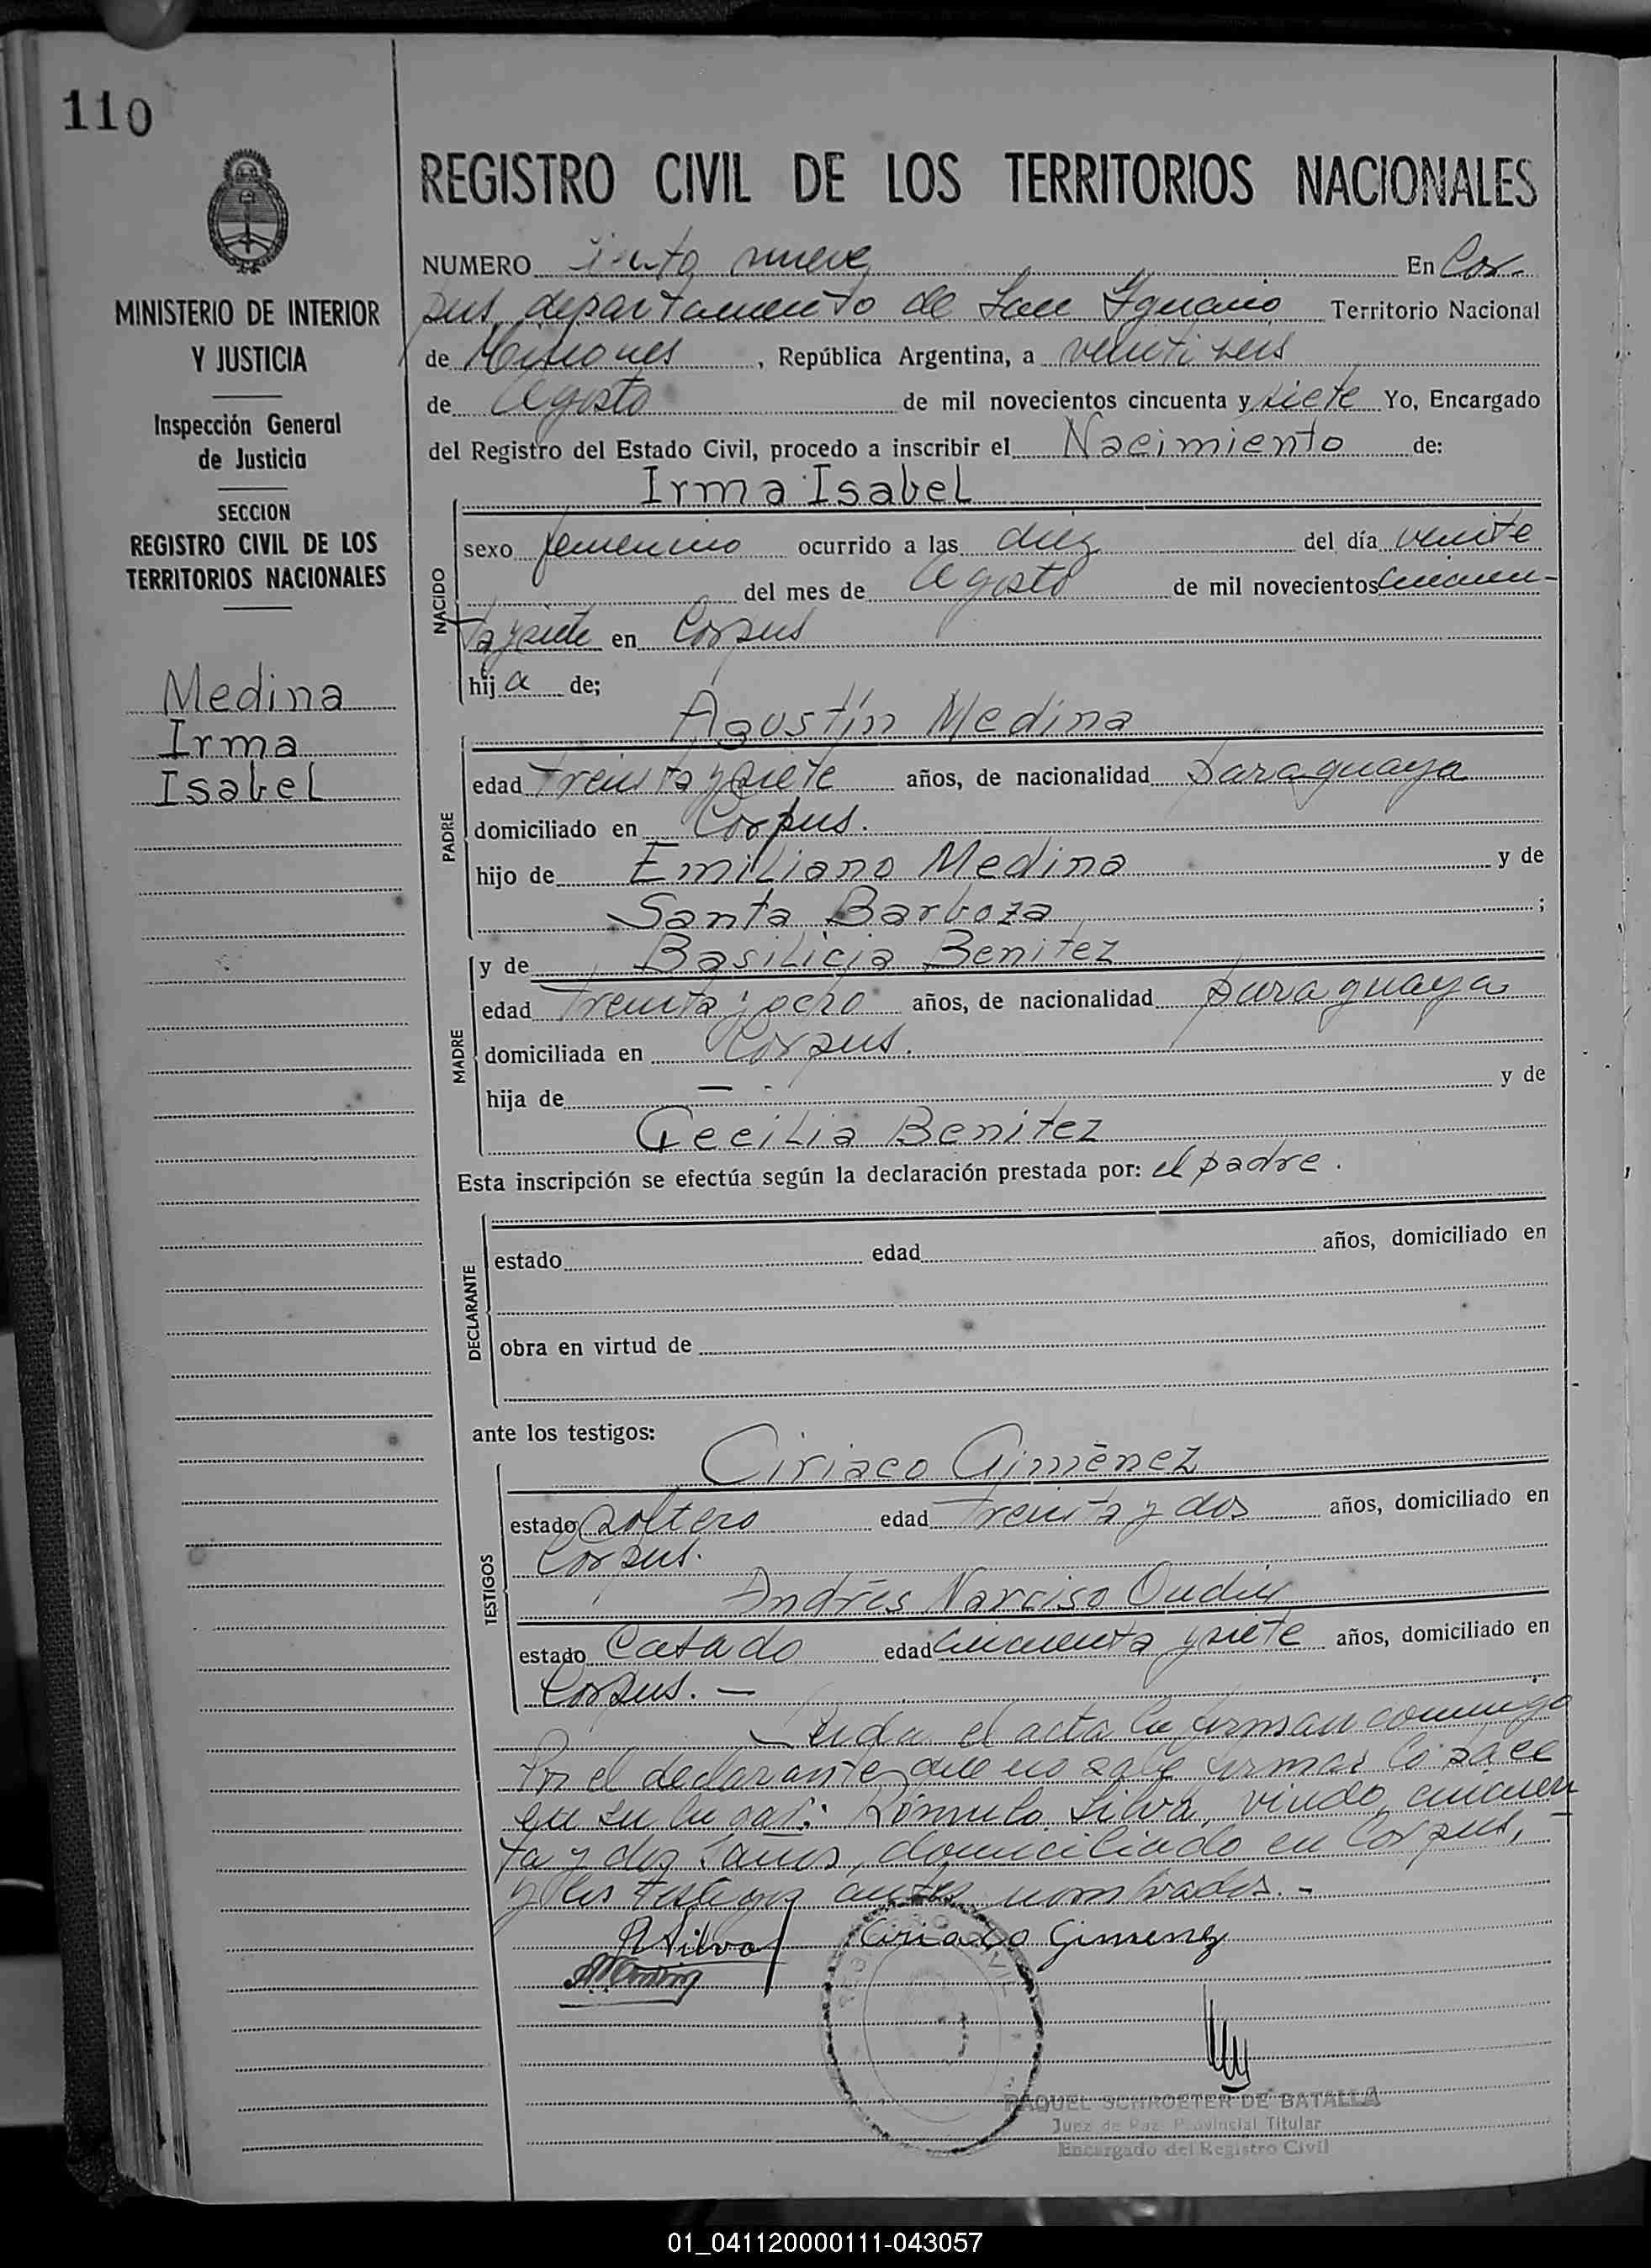 110
REGISTRO CIVIL DE LOS TERRITORIOS NACIONALES
MINISTERIO DE INTERIOR
Y JUSTICIA
Inspección General
de Justicia
SECCION
REGISTRO CIVIL DE LOS
TERRITORIOS NACIONALES
Medina
Irma
Isabel
NUMERO nueve En Cor-
pus departamento de San Ignacio Territorio Nacional
de Misiones, República Argentina, a veinti seis
de Agosto de mil novecientos cincuenta y siete Yo, Encargado
del Registro del Estado Civil, procedo a inscribir el Nacimiento de:
Irma Isabel
NACIDO
sexo femenino ocurrido a las diez del día veinte
del mes de Agosto de mil novecientos cincuen-
ta y siete en Corpus
hij a de;
Agustín Medina
PADRE
edad treinta y siete años, de nacionalidad paraguaya
domiciliado en Corpus.
hijo de Emiliano Medina y de
Santa Barboza ;
MADRE
y de Basilicia Benitez
edad treinta y ocho años, de nacionalidad paraguaya
domiciliada en Corpus.
hija de — - y de
Cecilia Benitez
Esta inscripción se efectúa según la declaración prestada por: el padre.
DECLARANTE
estado edad años, domiciliado en
obra en virtud de
ante los testigos:
TESTIGOS
Ciriaco Giménez
estado soltero edad treinta y dos años, domiciliado en
Corpus.
Andrés Narciso
estado Casado edad cincuenta y siete años, domiciliado en
Corpus. —
el acta la firman conmigo
Por el declarante que no sabe firmar lo hace
en su lugar: Rómulo Silva, viudo, cincuen
ta y dos años, domiciliado en Corpus,
y los testigos antes nombrados. -
R Silva Ciriaco Gimenez
RAQUEL SCHROETER DE BATALLA
Juez de Paz Provincial Titular
Encargado del Registro Civil
01_041120000111-043057